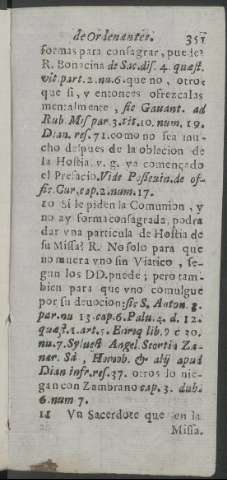 de Ordenantes. 351
formas para consagrar, puede?
R. Bonacina de Sac. dis. 4. quæst.
vlt. part. 2. nu. 6. que no, otros
que si, y entonces ofrezcalas
mentalmente, sic Gauant. ad
Rub. Mis. par. 3. tit. 10. num. 19.
Dian. res. 71. como no sea mu-
cho despues de la oblacion de
la Hostia. v. g. ya començado
el Prefacio. Vide Possevin. de of-
fic. Cur. cap. 2. num. 17.
10 Si le piden la Comunion, y
no ay forma consagrada, podra
dar vna particula de Hostia de
su Missa? R. No solo para que
no muera vno sin Viatico, se-
gun los DD. puede; pero tam-
bien para que vno comulgue
por su devocion: sic S. Anton. 3.
par. nu 13. cap. 6. Palu. 4. d. 12.
quæst. 1. art. 5. Enriq lib. 9 c 10.
nu. 7. Sylvest Angel. Scortia Za-
nar. Sà, Homob. & alij apud
Dian infr. res. 37. otros lo nie-
gan con Zambrano cap. 3. dub.
6. num 7.
11 Vn Sacerdote que en la
Missa.